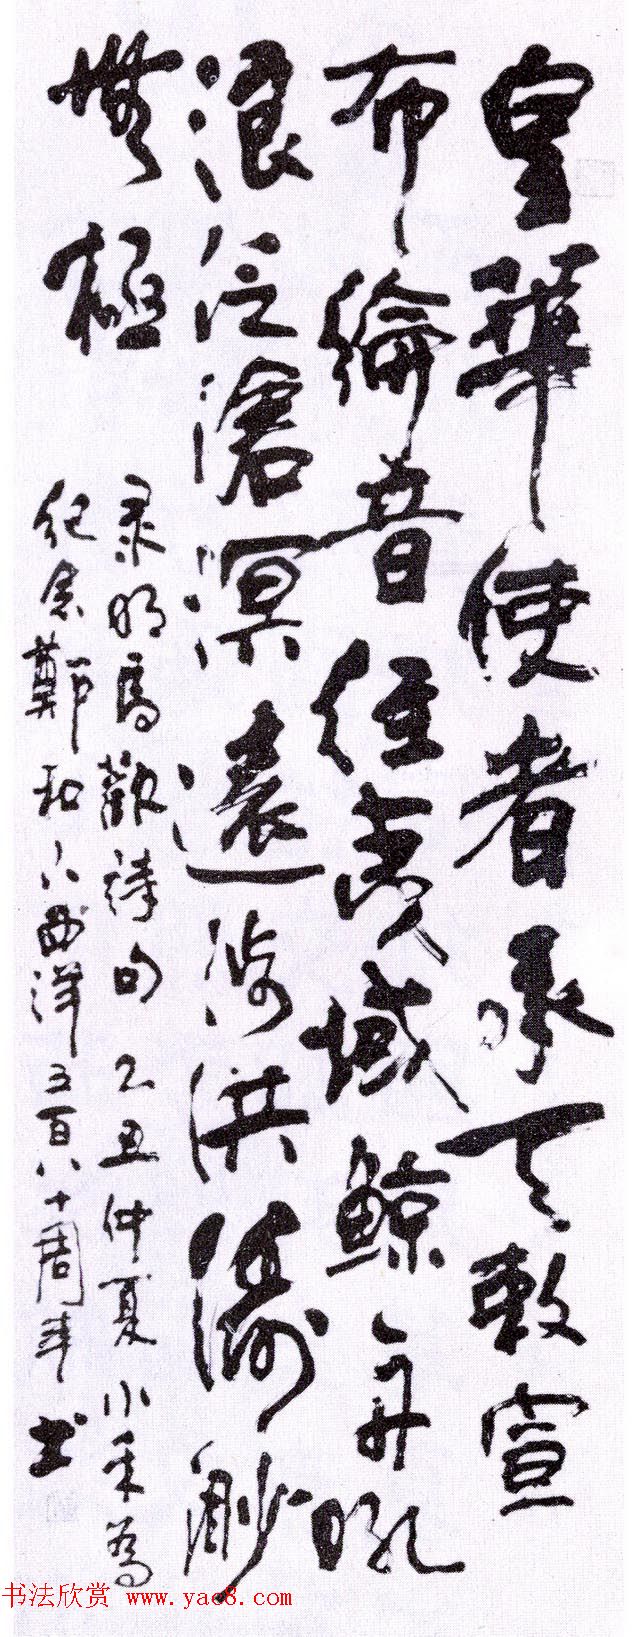 皇華使者承天敕宣
布綸音往夷域鯨舟吼
浪泛滄溟遠涉洪濤渺
無極
录明馬歡詩句 乙丑仲夏小 為
纪念鄭和下西洋五百八十周年 书
书法欣赏 www.yac8.com